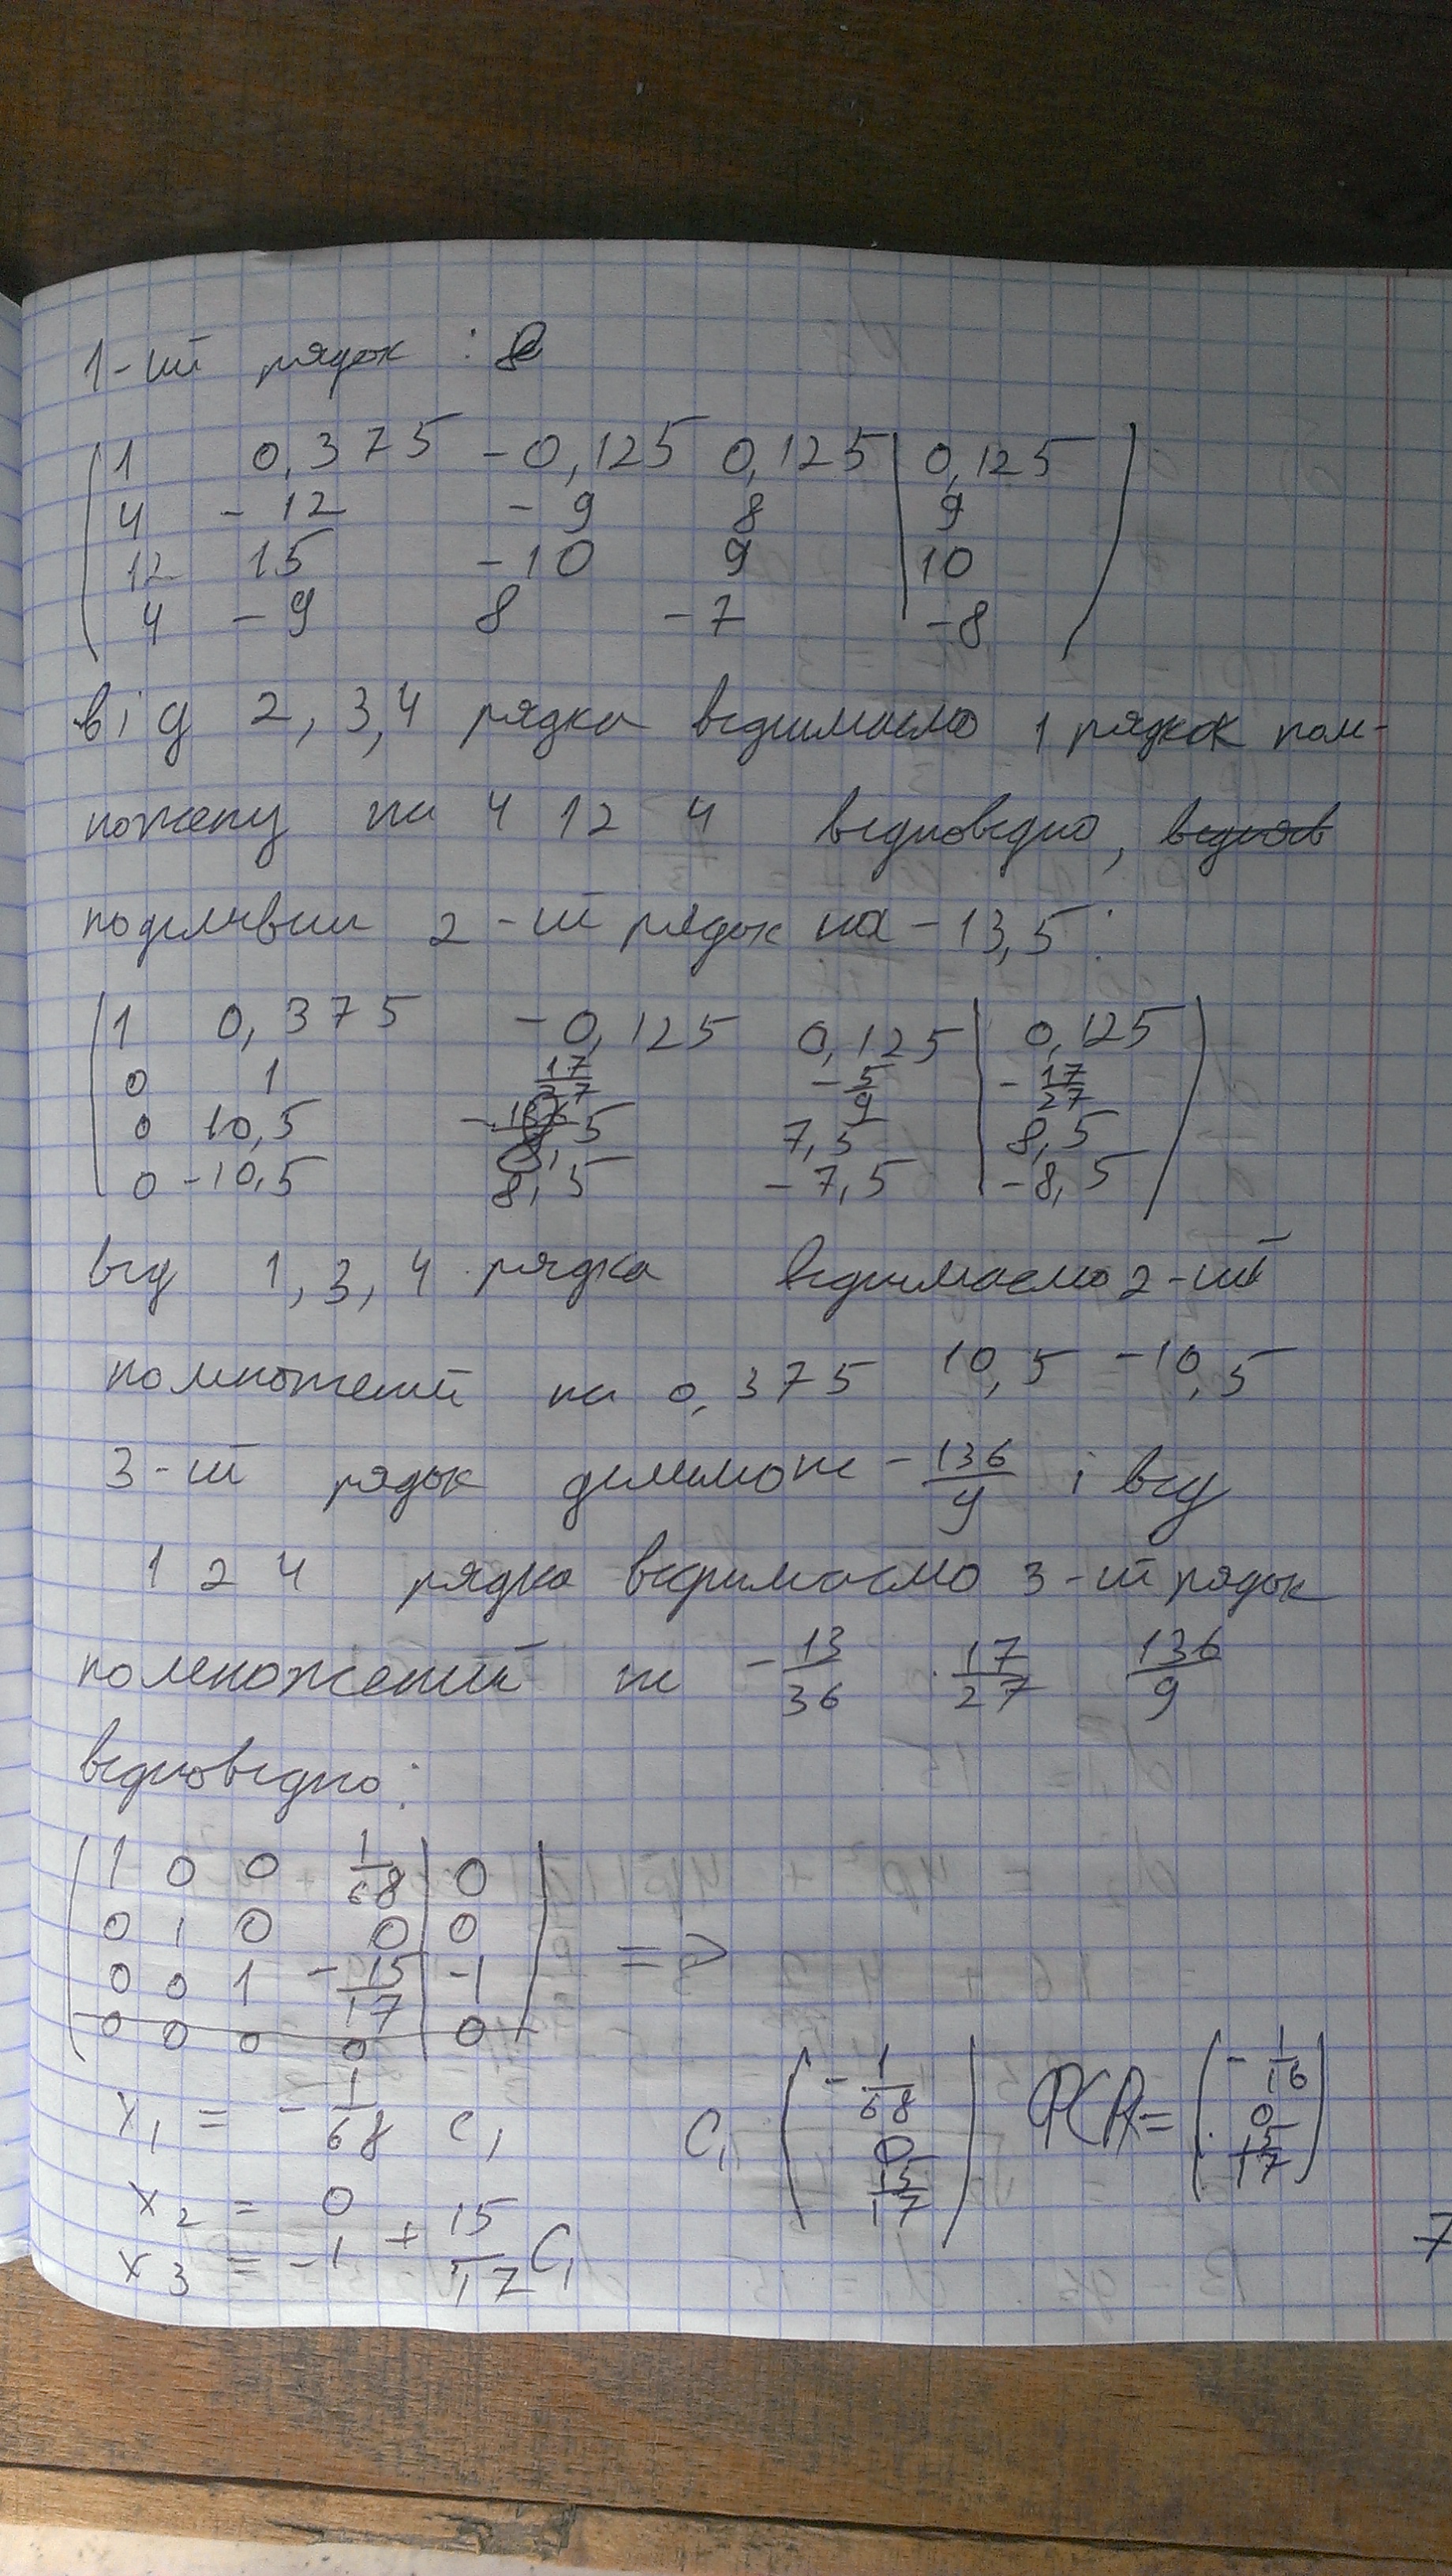 1-ий рядок : 8
1 0,375 -0,125 0,125 | 0,125
4 -12 -9 8 | 9
12 15 -10 9 | 10
4 -9 8 -7 | -8
від 2, 3,4 рядка віднімаємо 1 рядок пом-
ножену на 4 12 4 відповідно,
поділивши 2-ий рядок на -13,5:
1 0,375 -0,125 0,125 | 0,125
0 1 17/27 -5/9 | -17/27
0 10,5 -8,5 7,5 | 8,5
0 -10,5 8,5 -7,5 | -8,5
від 1, 3, 4 рядка віднімаємо 2-ий
помножений на 0,375 10,5 -10,5
3-ій рядок ділимо на -136/9 і від
1 2 4 рядка віднімаємо 3-ій рядок
помножений на -13/36 17/27 136/9
відповідно:
1 0 0 1/68 | 0
0 1 0 0 | 0
0 0 1 -15/17 | -1 =>
0 0 0 0 | 0
x1 = -1/68 C1
x2 = 0
x3 = -1 + 15/17 C1
C1 (-1/68 0 15/17)
ФСР = (-1/16 0 15/17)
7